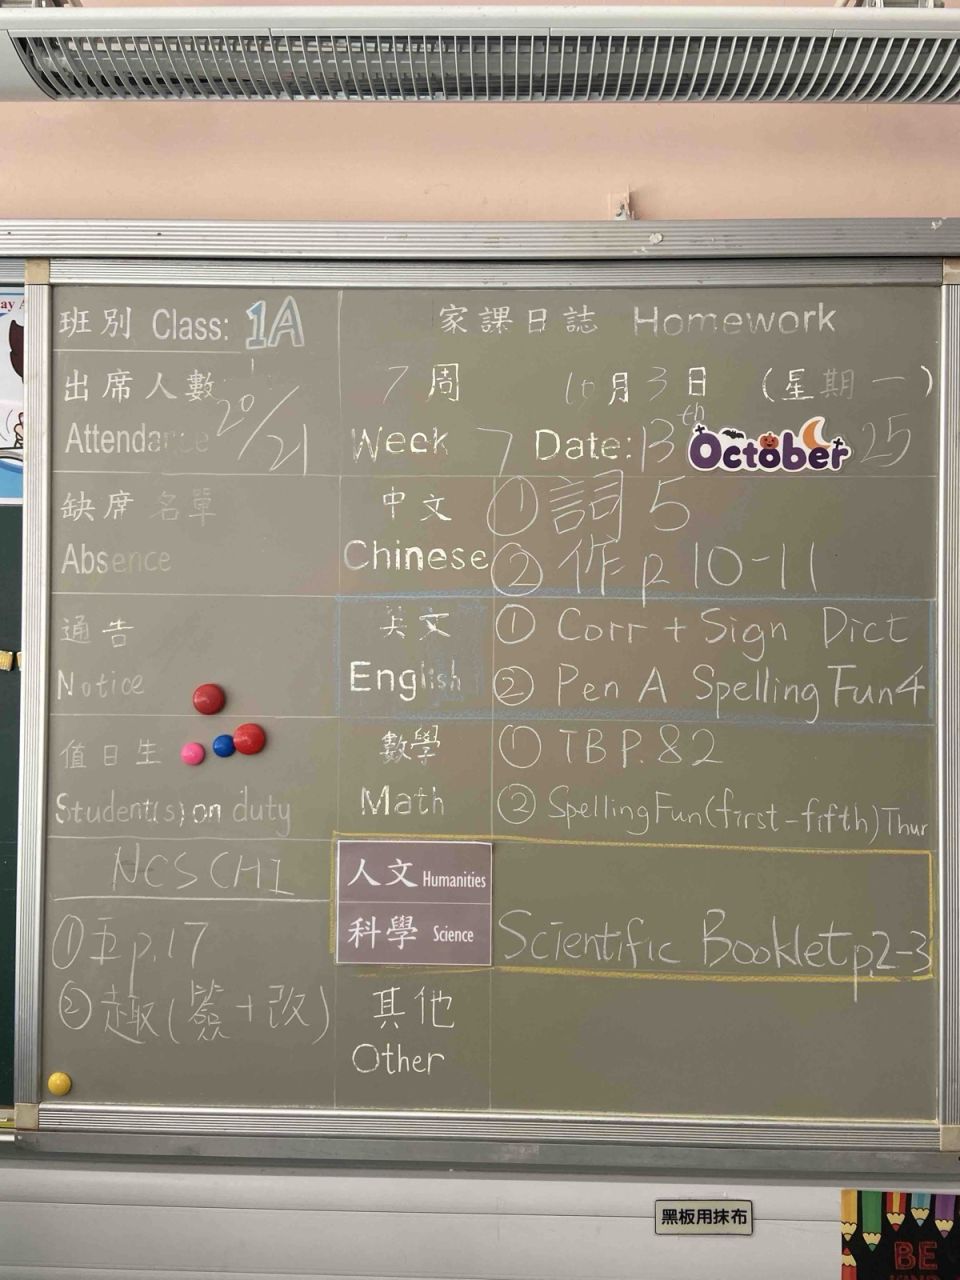 班別 Class: 1A
家課日誌 Homework
出席人數
Attendance 20/21
7周 10月3日 (星期一)
Week 7 Date: 13th October 25
缺席名單
Absence
中文
Chinese
① 詞 5
② 作 p 10-11
通告
Notice
英文
English
① Corr + Sign Dict
② Pen A Spelling Fun 4
值日生
Student(s) on duty
數學
Math
① TB P.82
② Spelling Fun (first-fifth) Thur
人文 Humanities
科學 Science
Scientific Booklet p.2-3
NCS CHI
① p.17
② 趣(簽+改)
其他
Other
黑板用抹布
BE